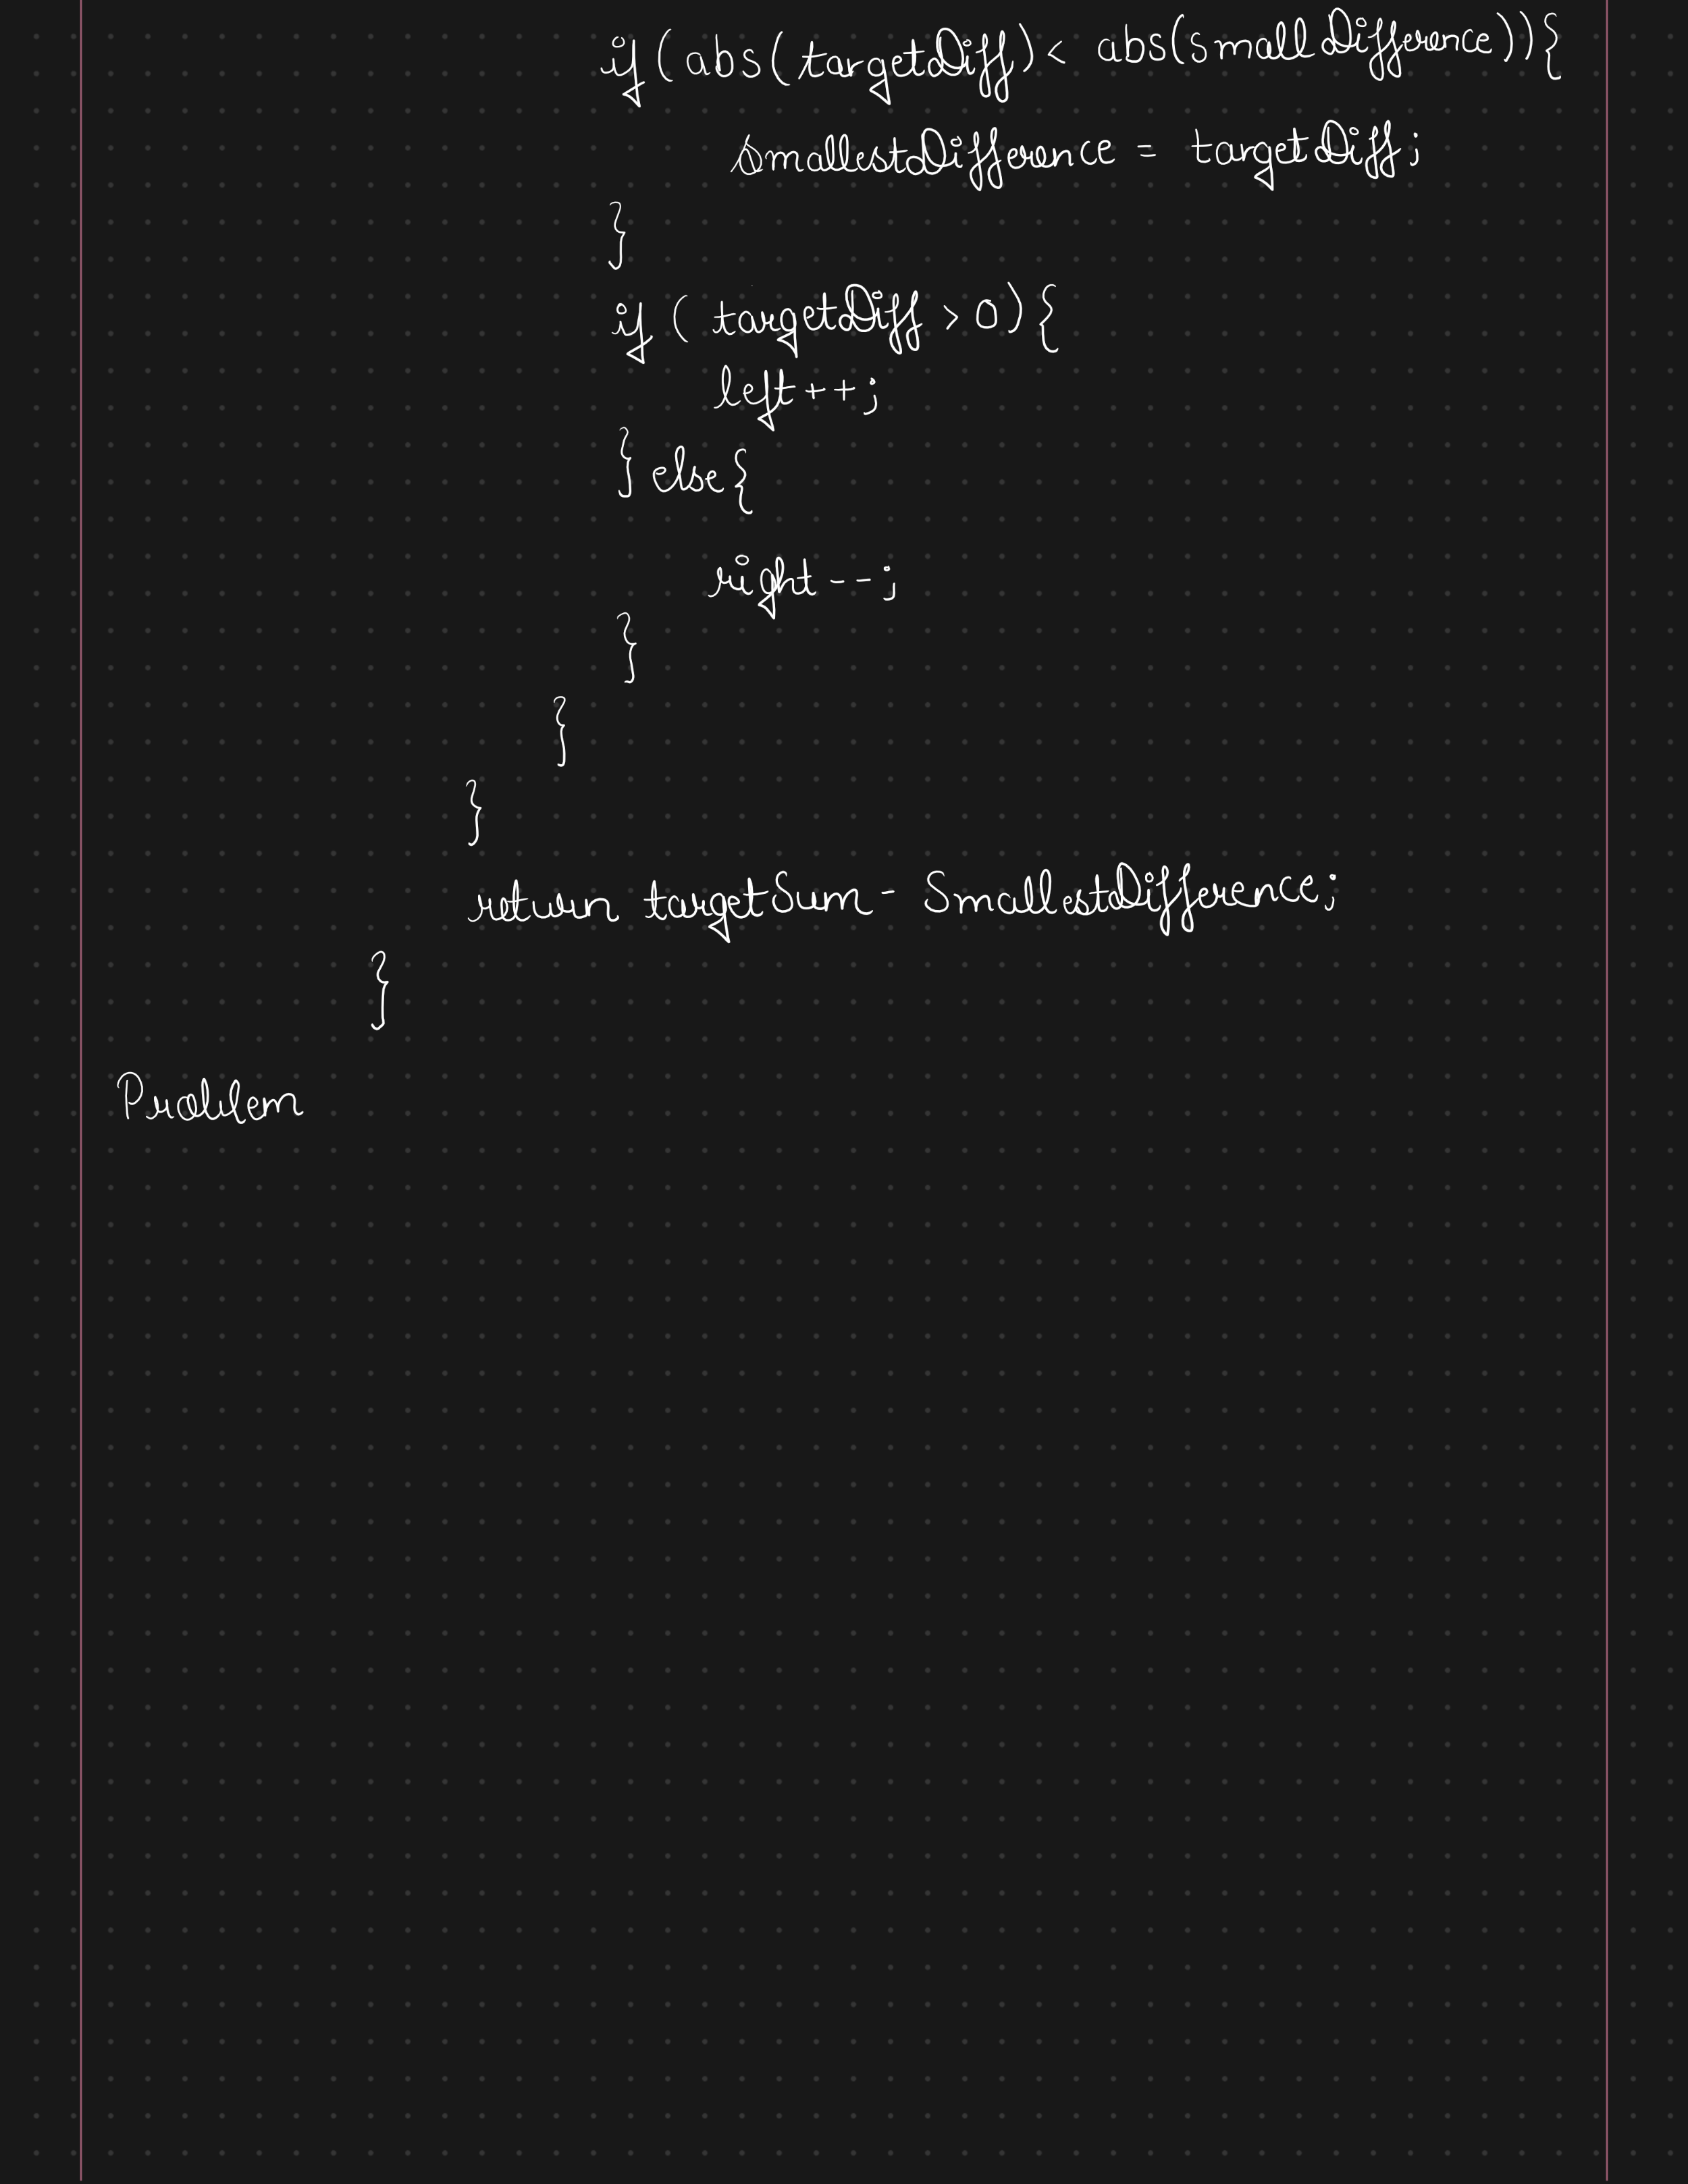 if (abs(targetDiff) < abs(smallDifference)){
smallestDifference = targetDiff;
}
if (targetDiff > 0){
left++;
} else {
right--;
}
}
}
return targetSum - SmallestDifference;
}
Problem